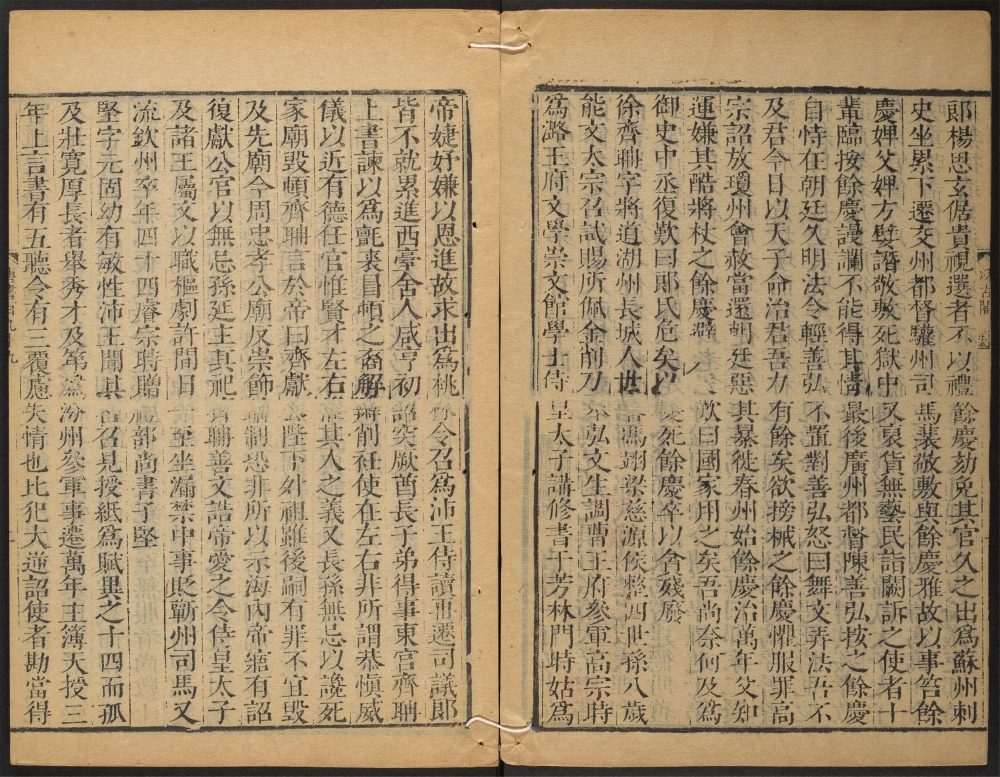 郎楊思玄倨貴視選者不以禮餘慶劾免其官久之出爲蘇州刺
史坐累下遷交州都督驩州司馬裴敬敷與餘慶雅故以事笞餘
慶婢父婢方嬖譖敬敷死獄中又裒貨無藝民詣闕訴之使者十
輩臨按餘慶謾讕不能得其情最後廣州都督陳善弘按之餘慶
自恃在朝廷久明法令輕善弘不置對善弘怒曰舞文弄法吾不
及君今日以天子命治君吾力有餘矣欲搒械之餘慶懼服罪高
宗詔放瓊州會赦當還朝廷惡其暴徙春州始餘慶治萬年父知
運嫌其酷將杖之餘慶避 歎曰國家用之矣吾尚奈何及爲
御史中丞復歎曰郎氏危矣以憂死餘慶卒以貪殘廢
徐齊聃字將道湖州長城人世客馮翊梁慈源侯整四世孫八歲
能文太宗召試賜所佩金削刀 弘文生調曹王府參軍高宗時
爲潞王府文學崇文館學士侍皇太子講修書于芳林門時姑爲
帝婕妤嫌以恩進故求出爲桃林令召爲沛王侍讀再遷司議郎
皆不就累進西臺舍人咸亨初詔突厥酋長子弟得事東宮齊聃
上書諫以爲氈裘冒頓之裔解辮削衽使在左右非所謂恭愼威
儀以近有德任官惟賢才左右惟其人之義又長孫無忌以讒死
家廟毀頓齊聃言於帝曰齊獻公陛下外祖雖後嗣有罪不宜毀
及先廟今周忠孝公廟反崇飾踰制恐非所以示海內帝寤有詔
復獻公官以無忌孫延主其祀齊聃善文誥帝愛之令侍皇太子
及諸王屬文以職樞劇許間日一至坐漏禁中事貶蘄州司馬又
流欽州卒年四十四睿宗時贈禮部尚書子堅
堅字元固幼有敏性沛王聞其名召見授紙爲賦異之十四而孤
及壯寬厚長者舉秀才及第爲汾州參軍事遷萬年主簿天授三
年上言書有五聽令有三覆慮失情也比犯大逆詔使者勘當得